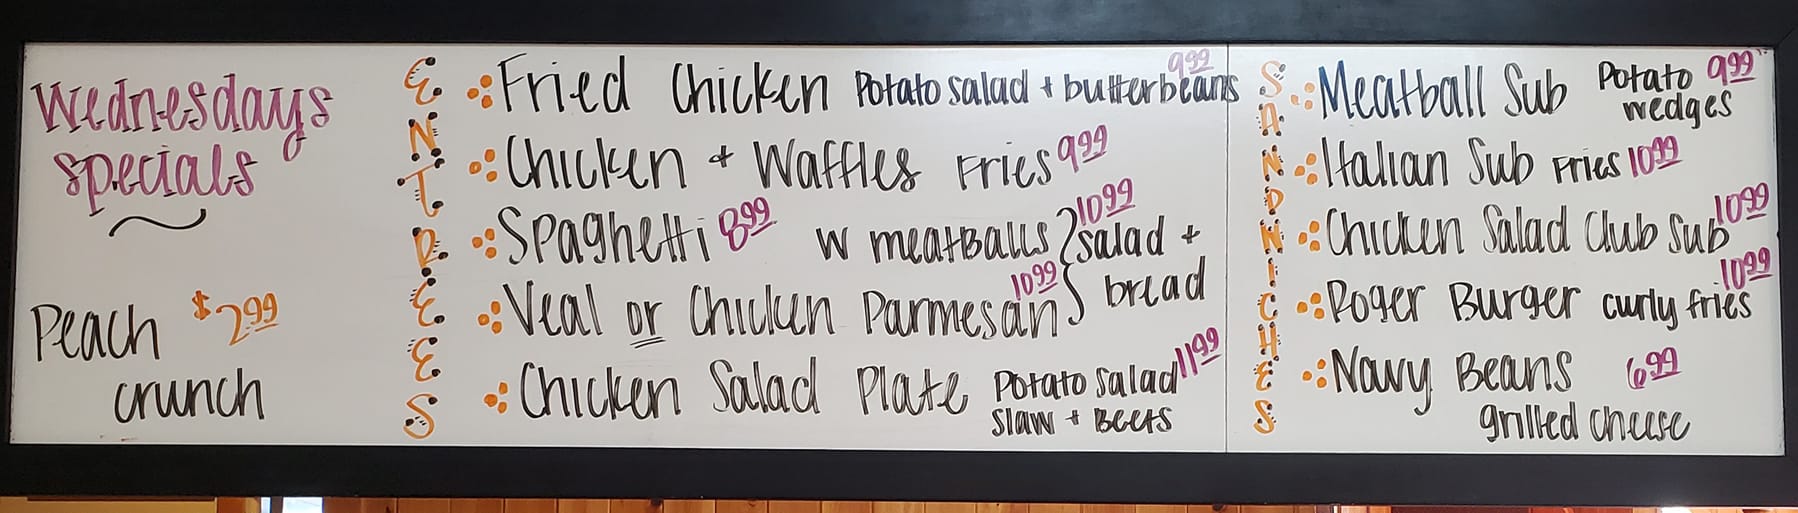 Wednesdays
specials
Peach $2.99
crunch
ENTREES
Fried Chicken Potato salad + butterbeans 9.99
Chicken + Waffles Fries 9.99
Spaghetti 8.99 W meatballs 10.99 salad +
bread
Veal or Chicken Parmesan 10.99
Chicken Salad Plate Potato salad 11.99
slaw + Beets
SANDWICHES
Meatball Sub Potato 9.99
wedges
Italian Sub Fries 10.99
Chicken Salad Club Sub 10.99
Roger Burger curly fries 10.99
Navy Beans 6.99
grilled cheese